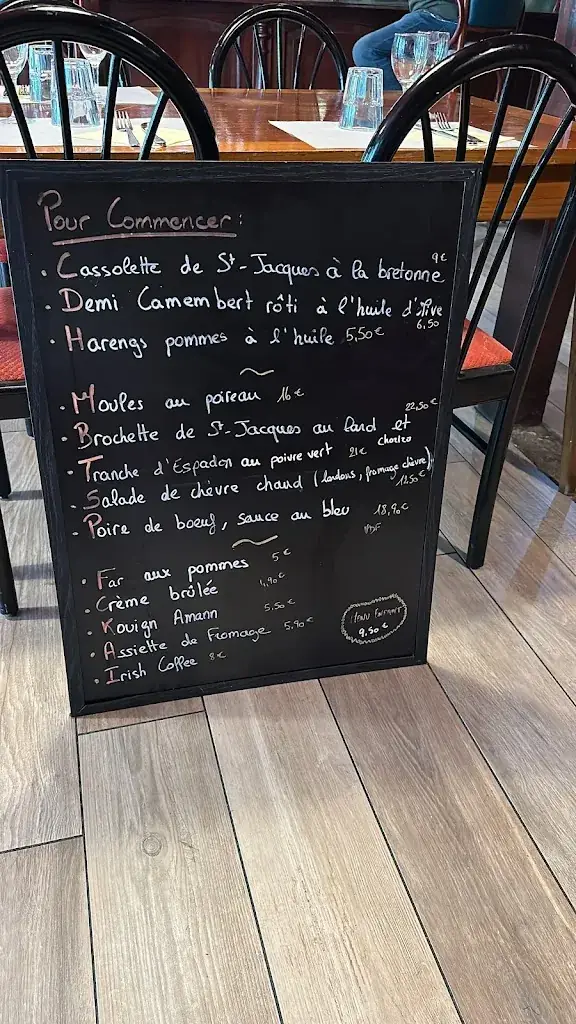 Pour Commencer:
. Cassolette de St-Jacques à la bretonne 9€
. Demi Camembert rôti à l'huile d'Olive 6,50
. Harengs pommes à l'huile 5,50€
. Moules au poireau 16€
. Brochette de St-Jacques au lard et chorizo 22,50€
. Tranche d'Espadon au poivre vert 21€
. Salade de chèvre chaud (lardons, fromage chèvre) 12,50€
. Poire de boeuf, sauce au bleu 18,90€
VBF
. Far aux pommes 5€
. Crème brûlée 4,90€
. Kouign Amann 5,50€
. Assiette de Fromage 5,90€
. Irish Coffee 8€
9,50€